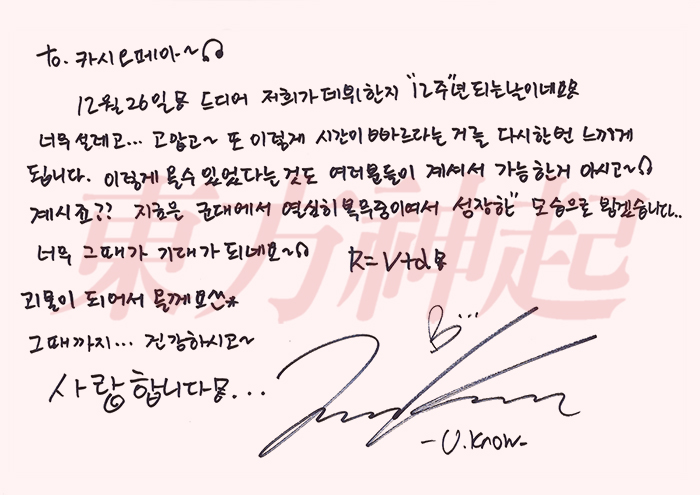 to. 카시오페아~
12월 26일 드디어 저희가 데뷔한지 "12주"년 되는날이네요
너무 설레고... 고맙고~ 또 이렇게 시간이 빠르다는 거를 다시한번 느끼게
됩니다. 이렇게 올수 있었다는것도 여러분들이 계셔서 가능한거 아시고~
계시죠?? 지금은 군대에서 열심히 복무중이여서 성장한" 모습으로 뵙겠습니다..
너무 그때가 기대가 되네요~ R=VtD
괴물이 되어서 올께요
그때까지... 건강하시고~
사랑합니다...
B...
-U.Know-
東方神起